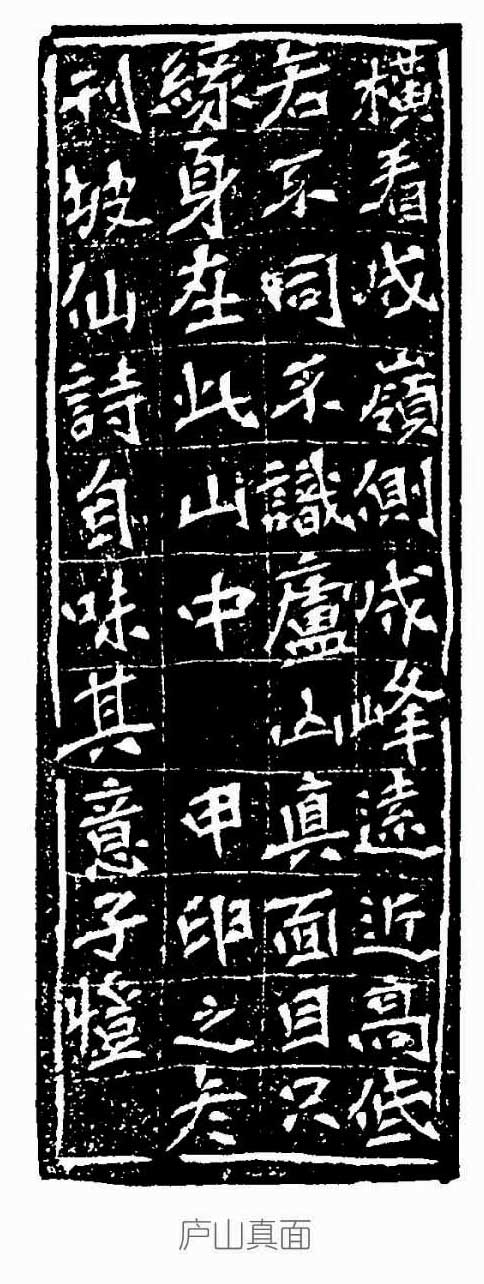 橫看成嶺側成峰遠近高低
各不同不識廬山真面目只
緣身在此山中 之冬
刊坡仙詩自味其意子
庐山真面